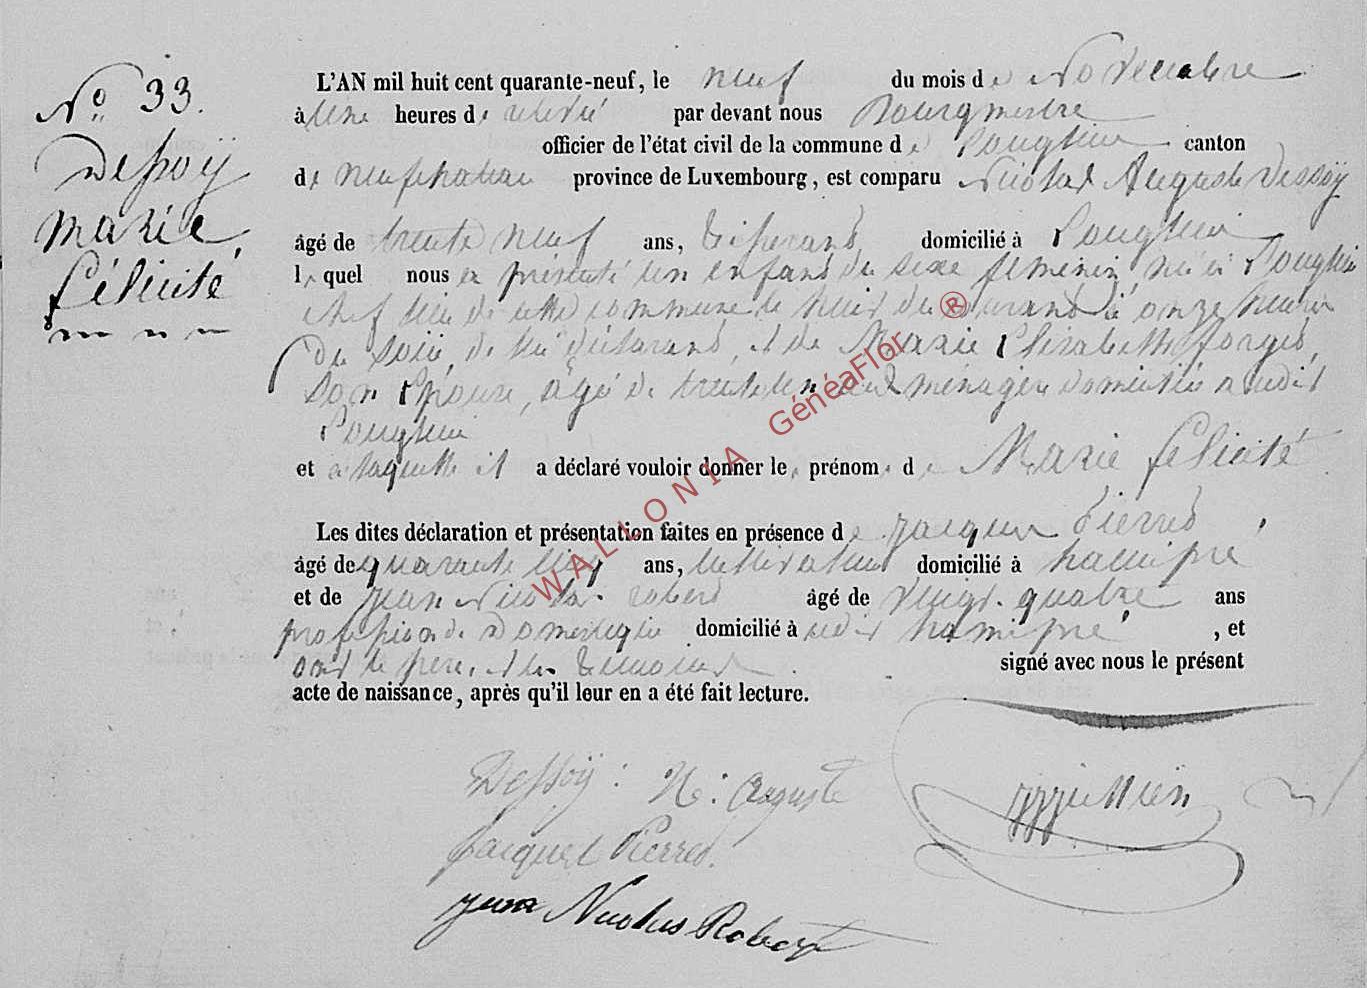 N° 33.
Dessoÿ
Marie
félicité
L'AN mil huit cent quarante-neuf, le neuf du mois de Novembre
à une heures de relevée par devant nous Bourgmestre
officier de l'état civil de la commune de canton
de neufchateau province de Luxembourg, est comparu Nicolas Auguste Dessoÿ
âgé de trente neuf ans, tisserand domicilié à
lequel nous a présenté un enfant du sexe féminin né à
chef lieu de cette commune le huit du courant à onze heures
du soir, de lui déclarant, et de Marie Elisabeth forget
son Epouse, agée de trente un ans ménagère domiciliée audit
et à laquelle il a déclaré vouloir donner les prénoms de Marie félicité
Les dites déclaration et présentation faites en présence de Jacques Pierred
âgé de quarante cinq ans, cultivateur domicilié à hamipré
et de jean Nicolas robert âgé de vingt quatre ans
profession de Domestique domicilié à audit hamipré, et
ont le père, et les témoins signé avec nous le présent
acte de naissance, après qu'il leur en a été fait lecture.
Dessoÿ : N : Auguste
Jacques Pierred.
jean Nicolas Robert
WALLONIA GénéaFlor ®